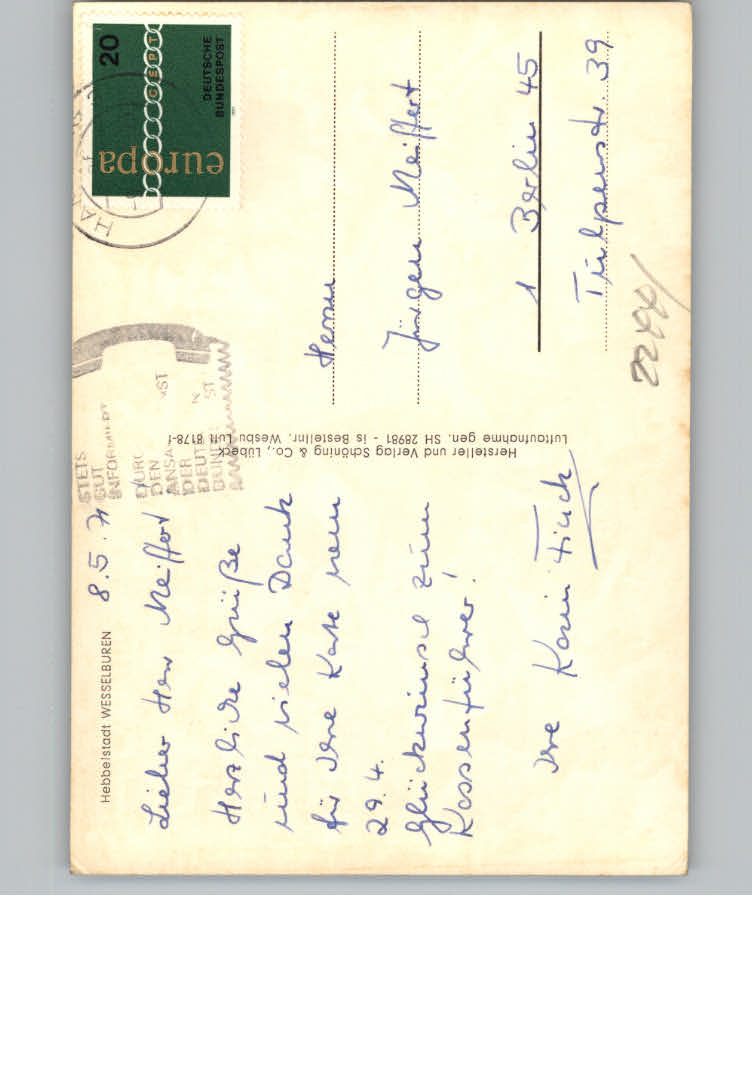 Hebbelstadt WESSELBUREN
8.5.71
Lieber Herr Meiffert
Herzliche Grüße
und vielen Dank
für Ihre Karte vom
29.4.
Glückwunsch zum
Kassenführer!
Ihre Karin Finck
Hersteller und Verlag Schöning & Co., Lübeck
Luftaufnahme gen. SH 28981 - is Bestellnr. Wesbu Luft 8178-
STETS
GUT
INFORMIERT
DURC
DEN
ANSA
DER
DEUT
BUN
ST
20
CEPT
europa
DEUTSCHE
BUNDESPOST
Herrn
Jürgen Meiffert
1 Berlin 45
Tulpenstr. 39
2244/